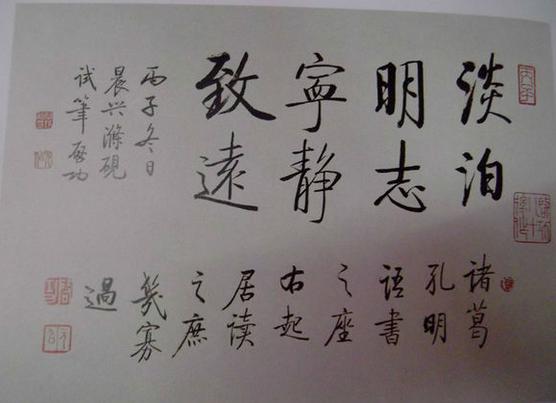 淡泊
明志
寧静
致遠
丙子冬日
晨兴滌硯
试笔启功
诸葛
孔明
语書
之座
右起
居读
之庶
幾寡
過